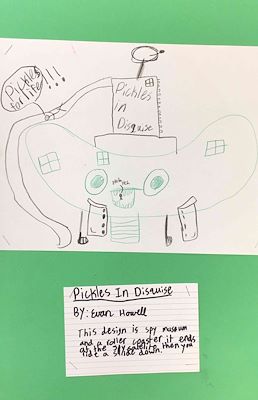 Pickles
for life!!!
Pickles
in
Disquise
Pickles In Disquise
BY: Evan Howell
This design is spy museum
and a roller coaster it ends
at the spy satelite then you
ride a slide down.